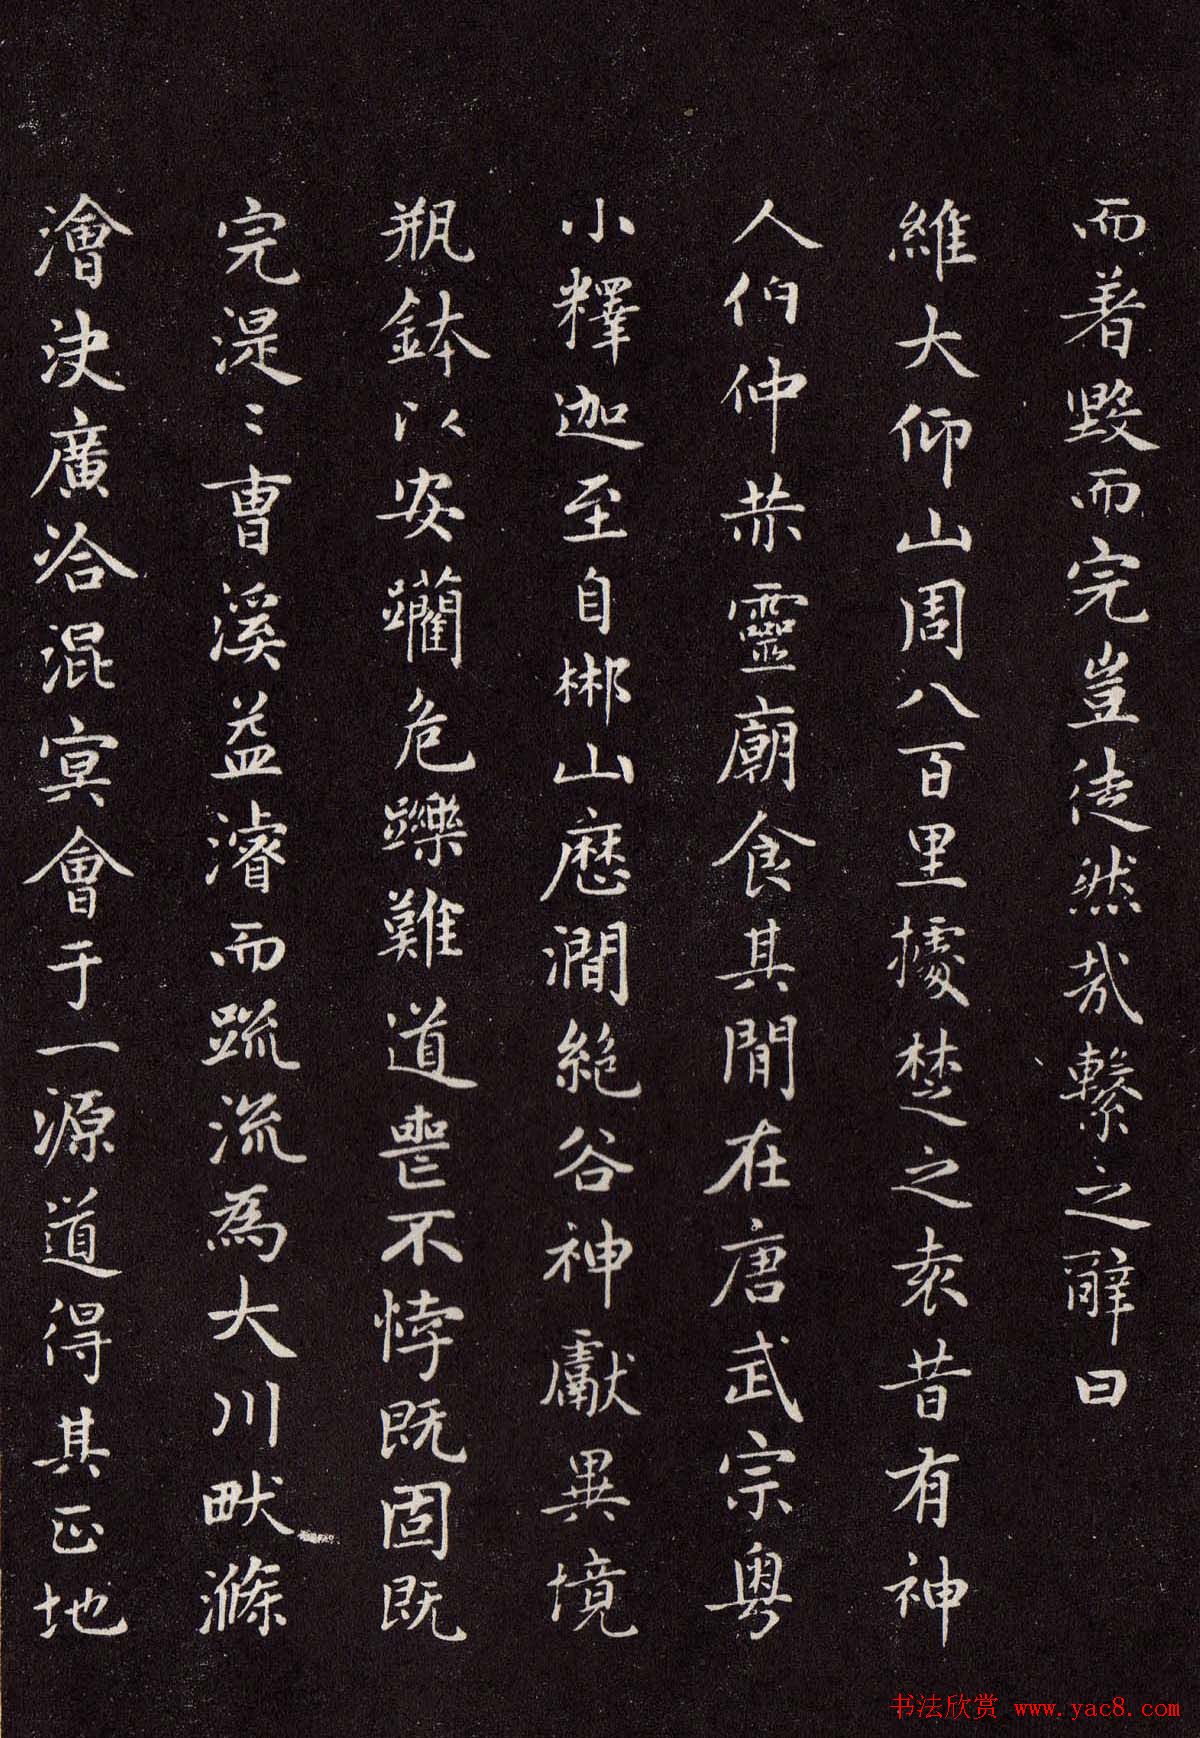 而著毀而完豈徒然哉繫之辭曰
維大仰山周八百里據楚之袁昔有神
人伯仲恭靈廟食其間在唐武宗粵
小釋迦至自郴山歷澗絕谷神獻異境
瓶鉢以安躪危躒難道鬯不悖既固既
完湜〻曹溪益濬而疏流為大川畎滌
澮決廣洽混冥會于一源道得其正地
书法欣赏 www.yac8.com